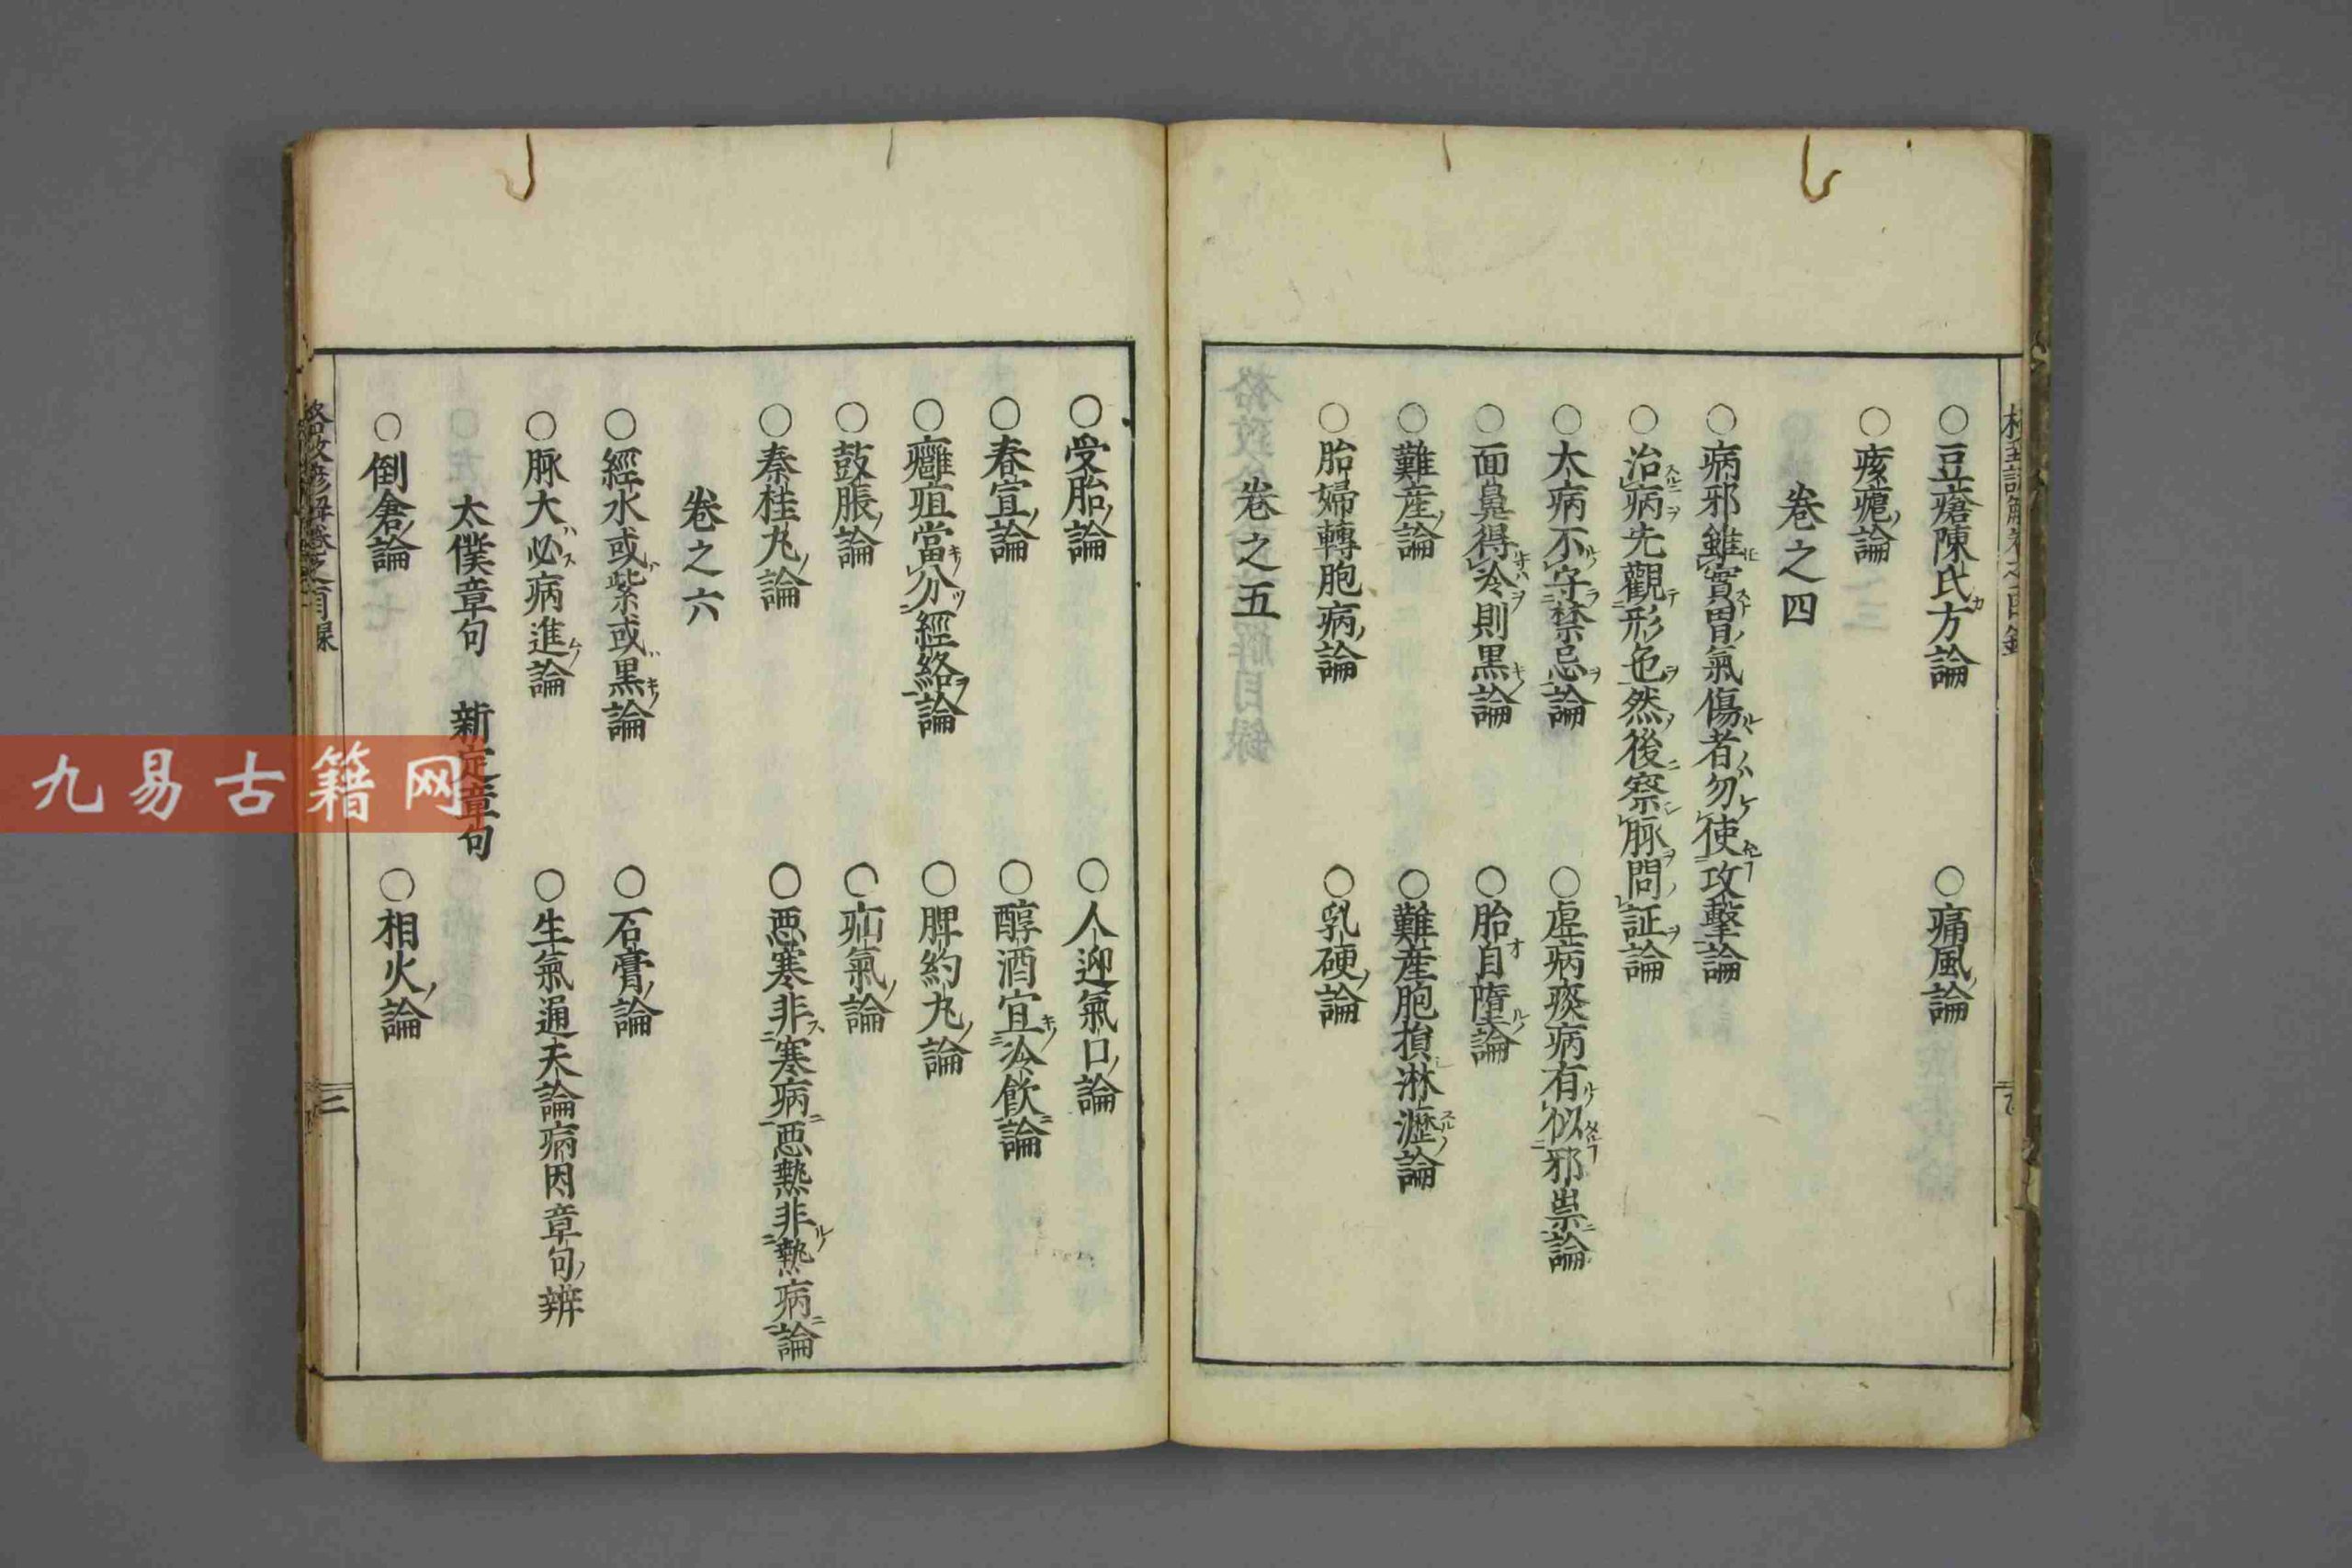 ○豆瘡陳氏方論 ○痛風論
○痎瘧論
卷之四
○病邪雖實胃氣傷者勿使攻擊論
○治病先觀形色然後察脉問証論
○大病不守禁忌論 ○虛病痰病有似邪祟論
○面鼻得冷則黑論 ○胎自墮論
○難産論 ○難産胞損淋瀝論
○胎婦轉胞病論 ○乳硬論
卷之五
○受胎論 ○人迎氣口論
○春宣論 ○醇酒宜冷飲論
○癰疽當分經絡論 ○脾約丸論
○鼓脹論 ○疝氣論
○秦桂丸論 ○惡寒非寒病惡熱非熱病論
卷之六
○經水或紫或黑論 ○石膏論
○脉大必病進論 ○生氣通天論病因章句辨
太僕章句 新定章句
○倒倉論 ○相火論
九易古籍网